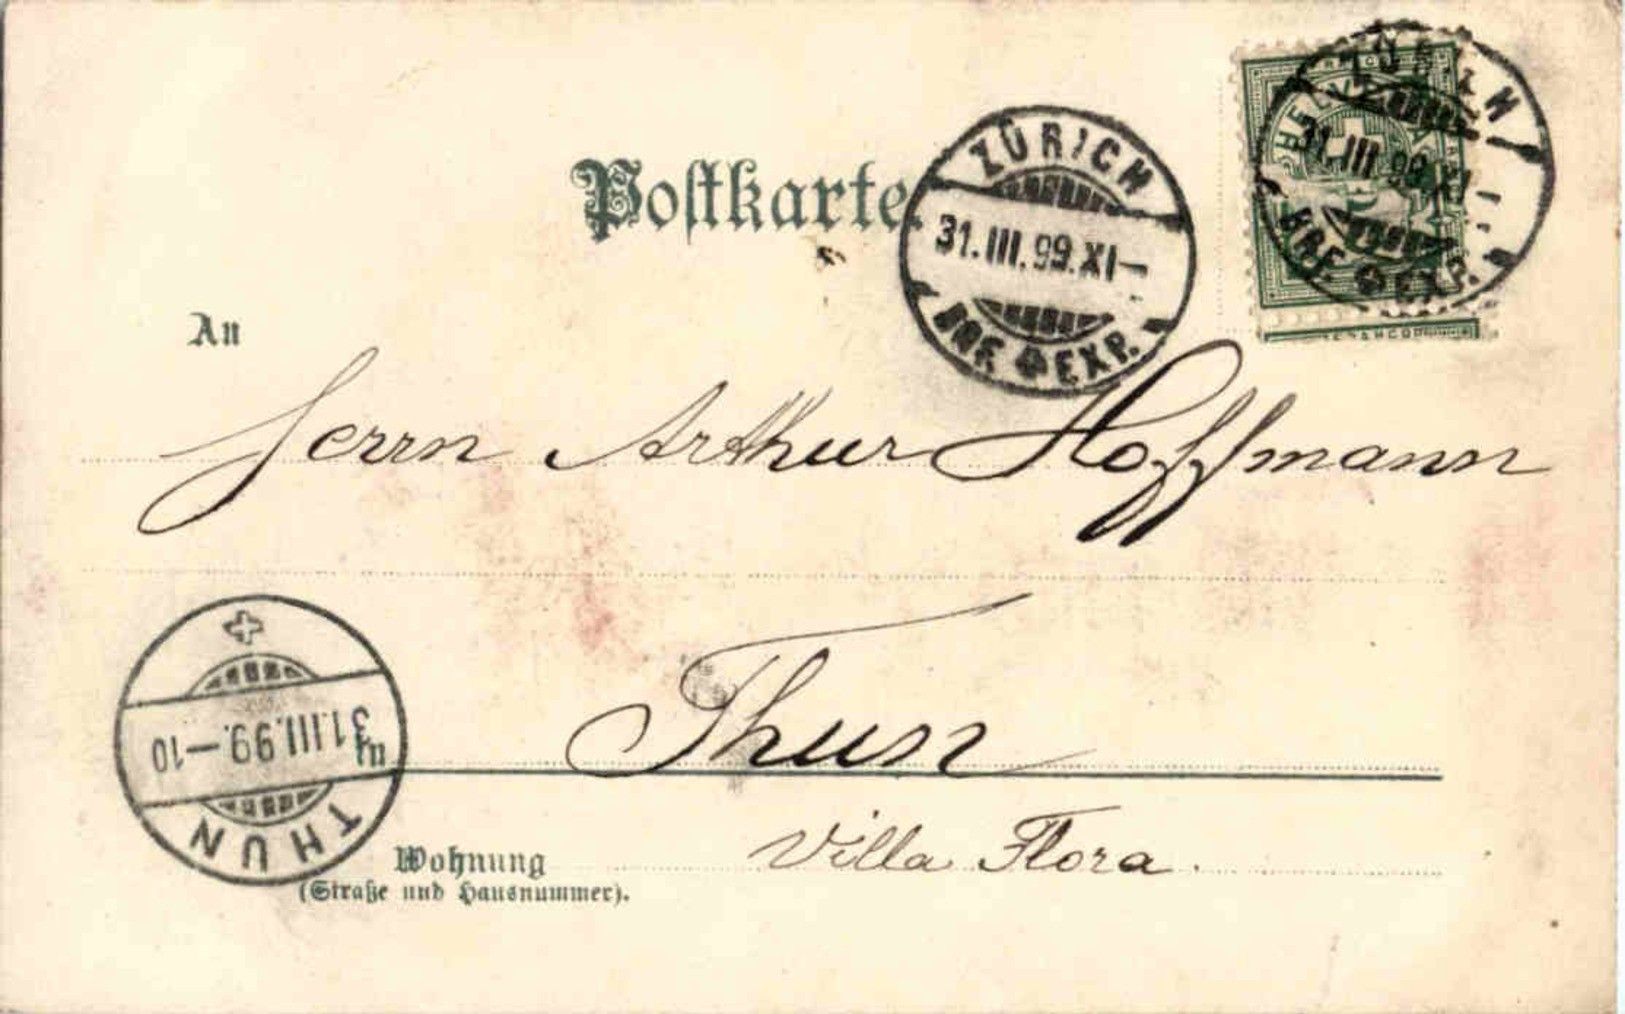 Postkarte.
ZÜRICH
31.III.99.XI—
BRF. EXP.
ZÜRICH
31.III.99.XI
BRF. EXP.
HELVETIA
An
Herrn Arthur Hoffmann
Thun
in
THUN
31.III.99.—10
Villa Flora.
Wohnung
(Straße und Hausnummer).